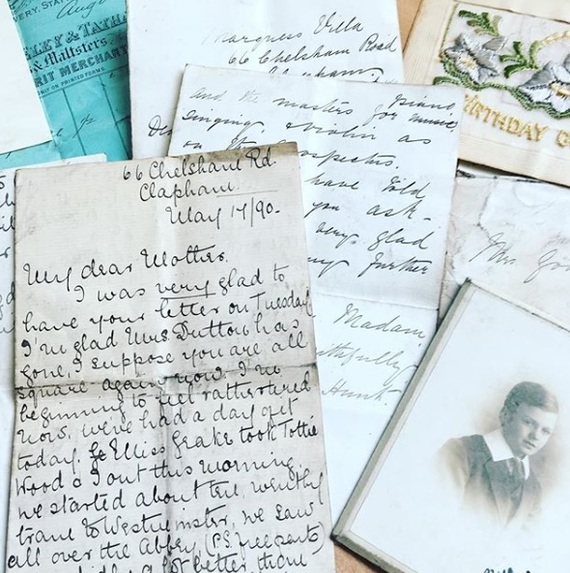 LEY & TATHA
& Maltsters.
RIT MERCHANT
Villa
66 Chelsham Road
Clapham.
and the masters for Piano
singing & violin as
on the prospectus.
have told
you ask-
very glad
any further
Madam
faithfully
Hunt.
BIRTHDAY G
Mrs
66 Chelsham Rd.
Clapham.
May 17/90.
My dear Mother.
I was very glad to
have your letter on Tuesday
I'm glad Mrs. Dutton has
gone, I suppose you are all
square again now. I'm
beginning to feel rather tired
now. we've had a day out
today. Ellis Grake took Tottie
Wood & I out this morning
we started about ten, went by
tram to Westminster, we saw
all over the Abbey (P.S. free parts)
a lot better than